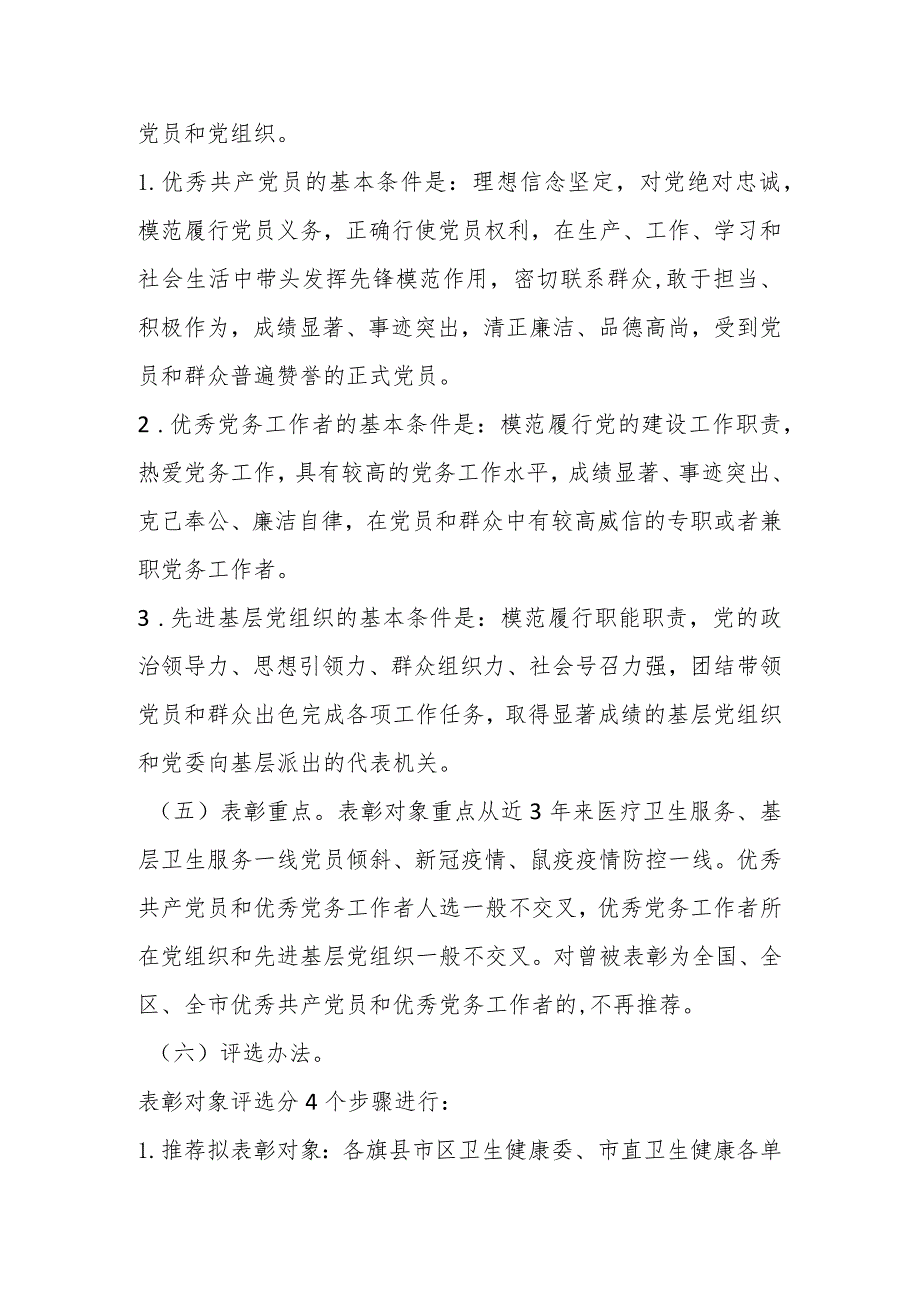 党员和党组织。
1. 优秀共产党员的基本条件是：理想信念坚定，对党绝对忠诚，
模范履行党员义务，正确行使党员权利，在生产、工作、学习和
社会生活中带头发挥先锋模范作用，密切联系群众,敢于担当、
积极作为，成绩显著、事迹突出，清正廉洁、品德高尚，受到党
员和群众普遍赞誉的正式党员。
2 . 优秀党务工作者的基本条件是：模范履行党的建设工作职责，
热爱党务工作，具有较高的党务工作水平，成绩显著、事迹突出、
克己奉公、廉洁自律，在党员和群众中有较高威信的专职或者兼
职党务工作者。
3 . 先进基层党组织的基本条件是：模范履行职能职责，党的政
治领导力、思想引领力、群众组织力、社会号召力强，团结带领
党员和群众出色完成各项工作任务，取得显著成绩的基层党组织
和党委向基层派出的代表机关。
（五）表彰重点。表彰对象重点从近 3 年来医疗卫生服务、基
层卫生服务一线党员倾斜、新冠疫情、鼠疫疫情防控一线。优秀
共产党员和优秀党务工作者人选一般不交叉，优秀党务工作者所
在党组织和先进基层党组织一般不交叉。对曾被表彰为全国、全
区、全市优秀共产党员和优秀党务工作者的,不再推荐。
（六）评选办法。
表彰对象评选分 4 个步骤进行：
1. 推荐拟表彰对象：各旗县市区卫生健康委、市直卫生健康各单